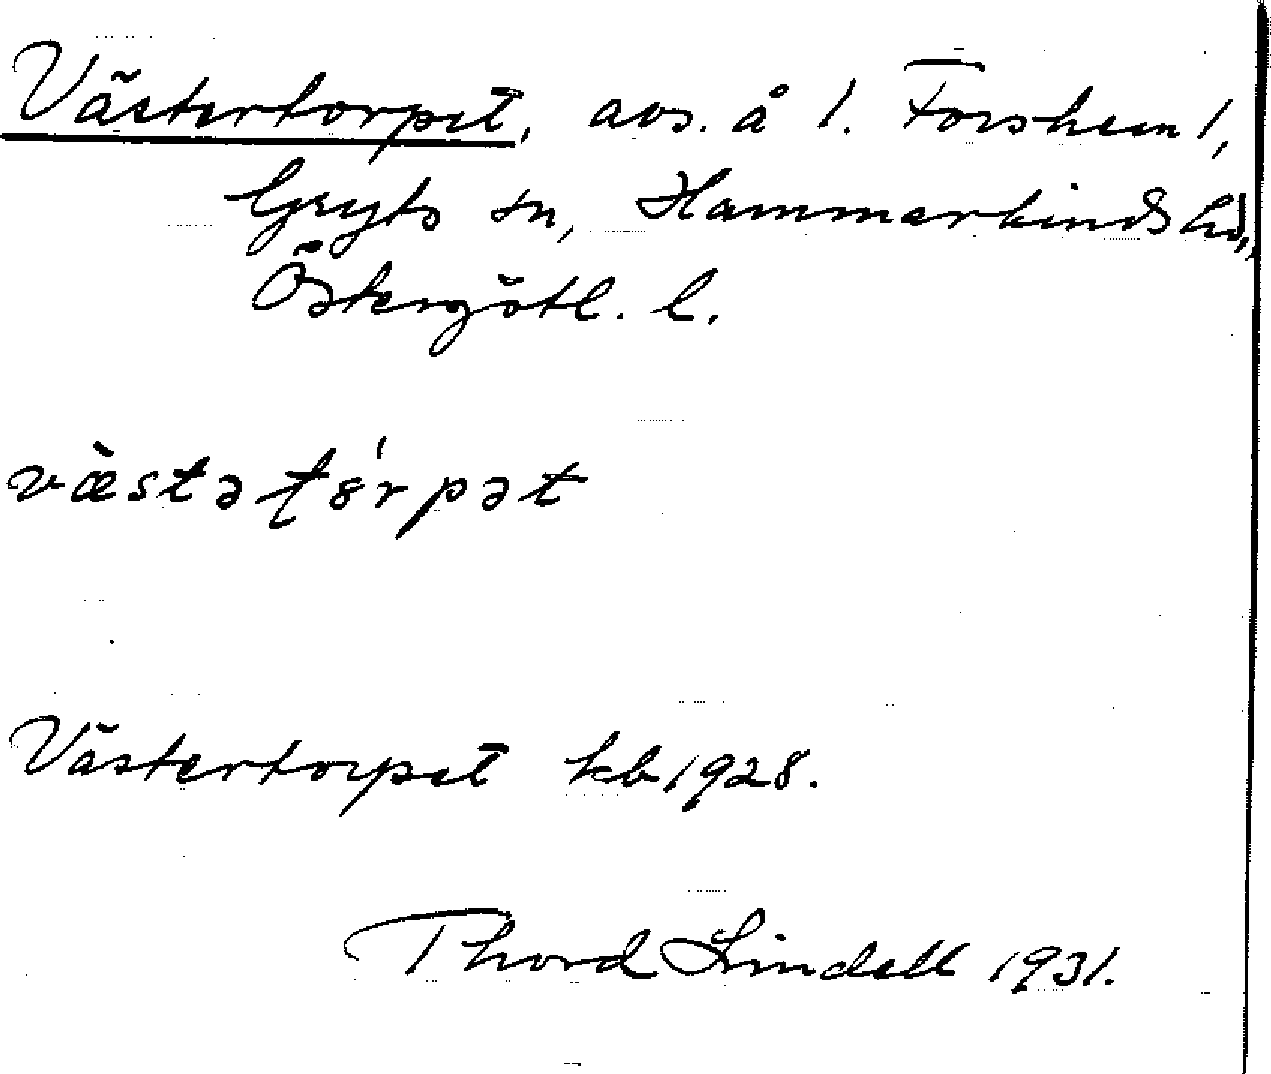 Västertorpet, avs. å 1. Forshem 1,
Gryts sn, Hammarkinds hd,
Östergötl. l.
væ̀stəʈɞ́rpət
Västertorpet kb 1928.
Thord Lindell 1931.